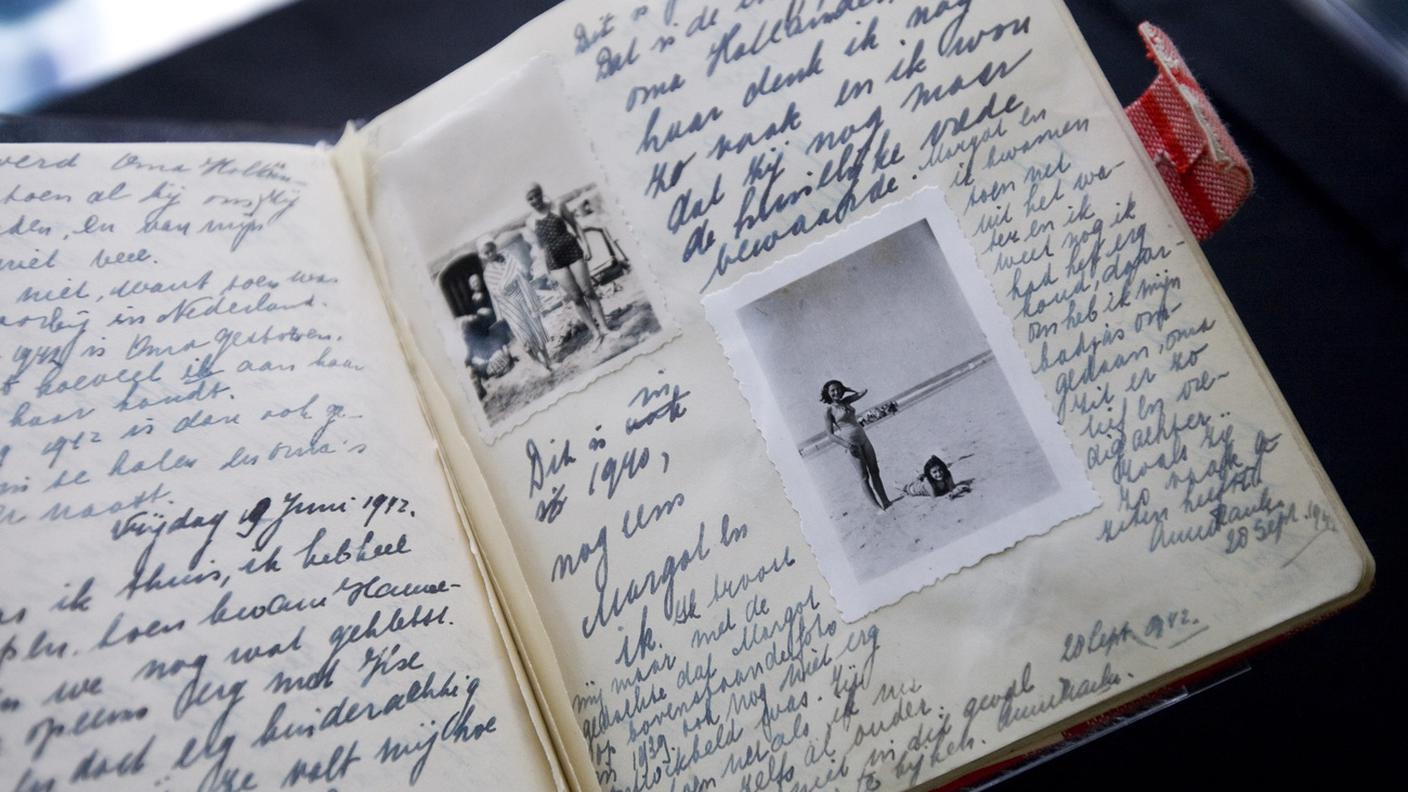 werd Oma Hollän-
toen al zij ons zij
den, en van mijn
niet veel.
niet, want toen was
oorlog in Nederland.
1942 is Oma gestorven.
hoeveel ik aan haar
haar houdt.
1942 is dan ook ge-
te halen en oma's
naast.
Vrijdag 19 Juni 1942.
ik thuis, ik heb heel
toen kwam Hanne-
we nog wat gekletst.
opeens erg met Ilse
doch erg kinderachtig
Ze valt mij hoe
Dit is
Dat is de
oma Hollander,
haar denk ik nog
zo vaak en ik wou
dat zij nog maar
de huiselijke vrede
bewaarde.
Margot en
ik kwamen
toen net
uit het wa-
ter en ik
weet nog ik
had het erg
koud, daar-
om heb ik mijn
badjas om-
gedaan, oma
zit er zo
lief en vre-
dig achter..
Zoals zij
zo vaak
Anne Frank
28 Sept. 1942
Dit is in
1940,
nog eens
Margot en
ik. Ik troost
mij maar met de
gedachte dat Margot
op bovenstaande foto
in 1939, ook nog niet erg
ontwikkeld was. Zij
toen net als ik nu
zelfs al ouder.
niet in dik geval
te kijken. Anne Frank.
20 Sept. 1942.